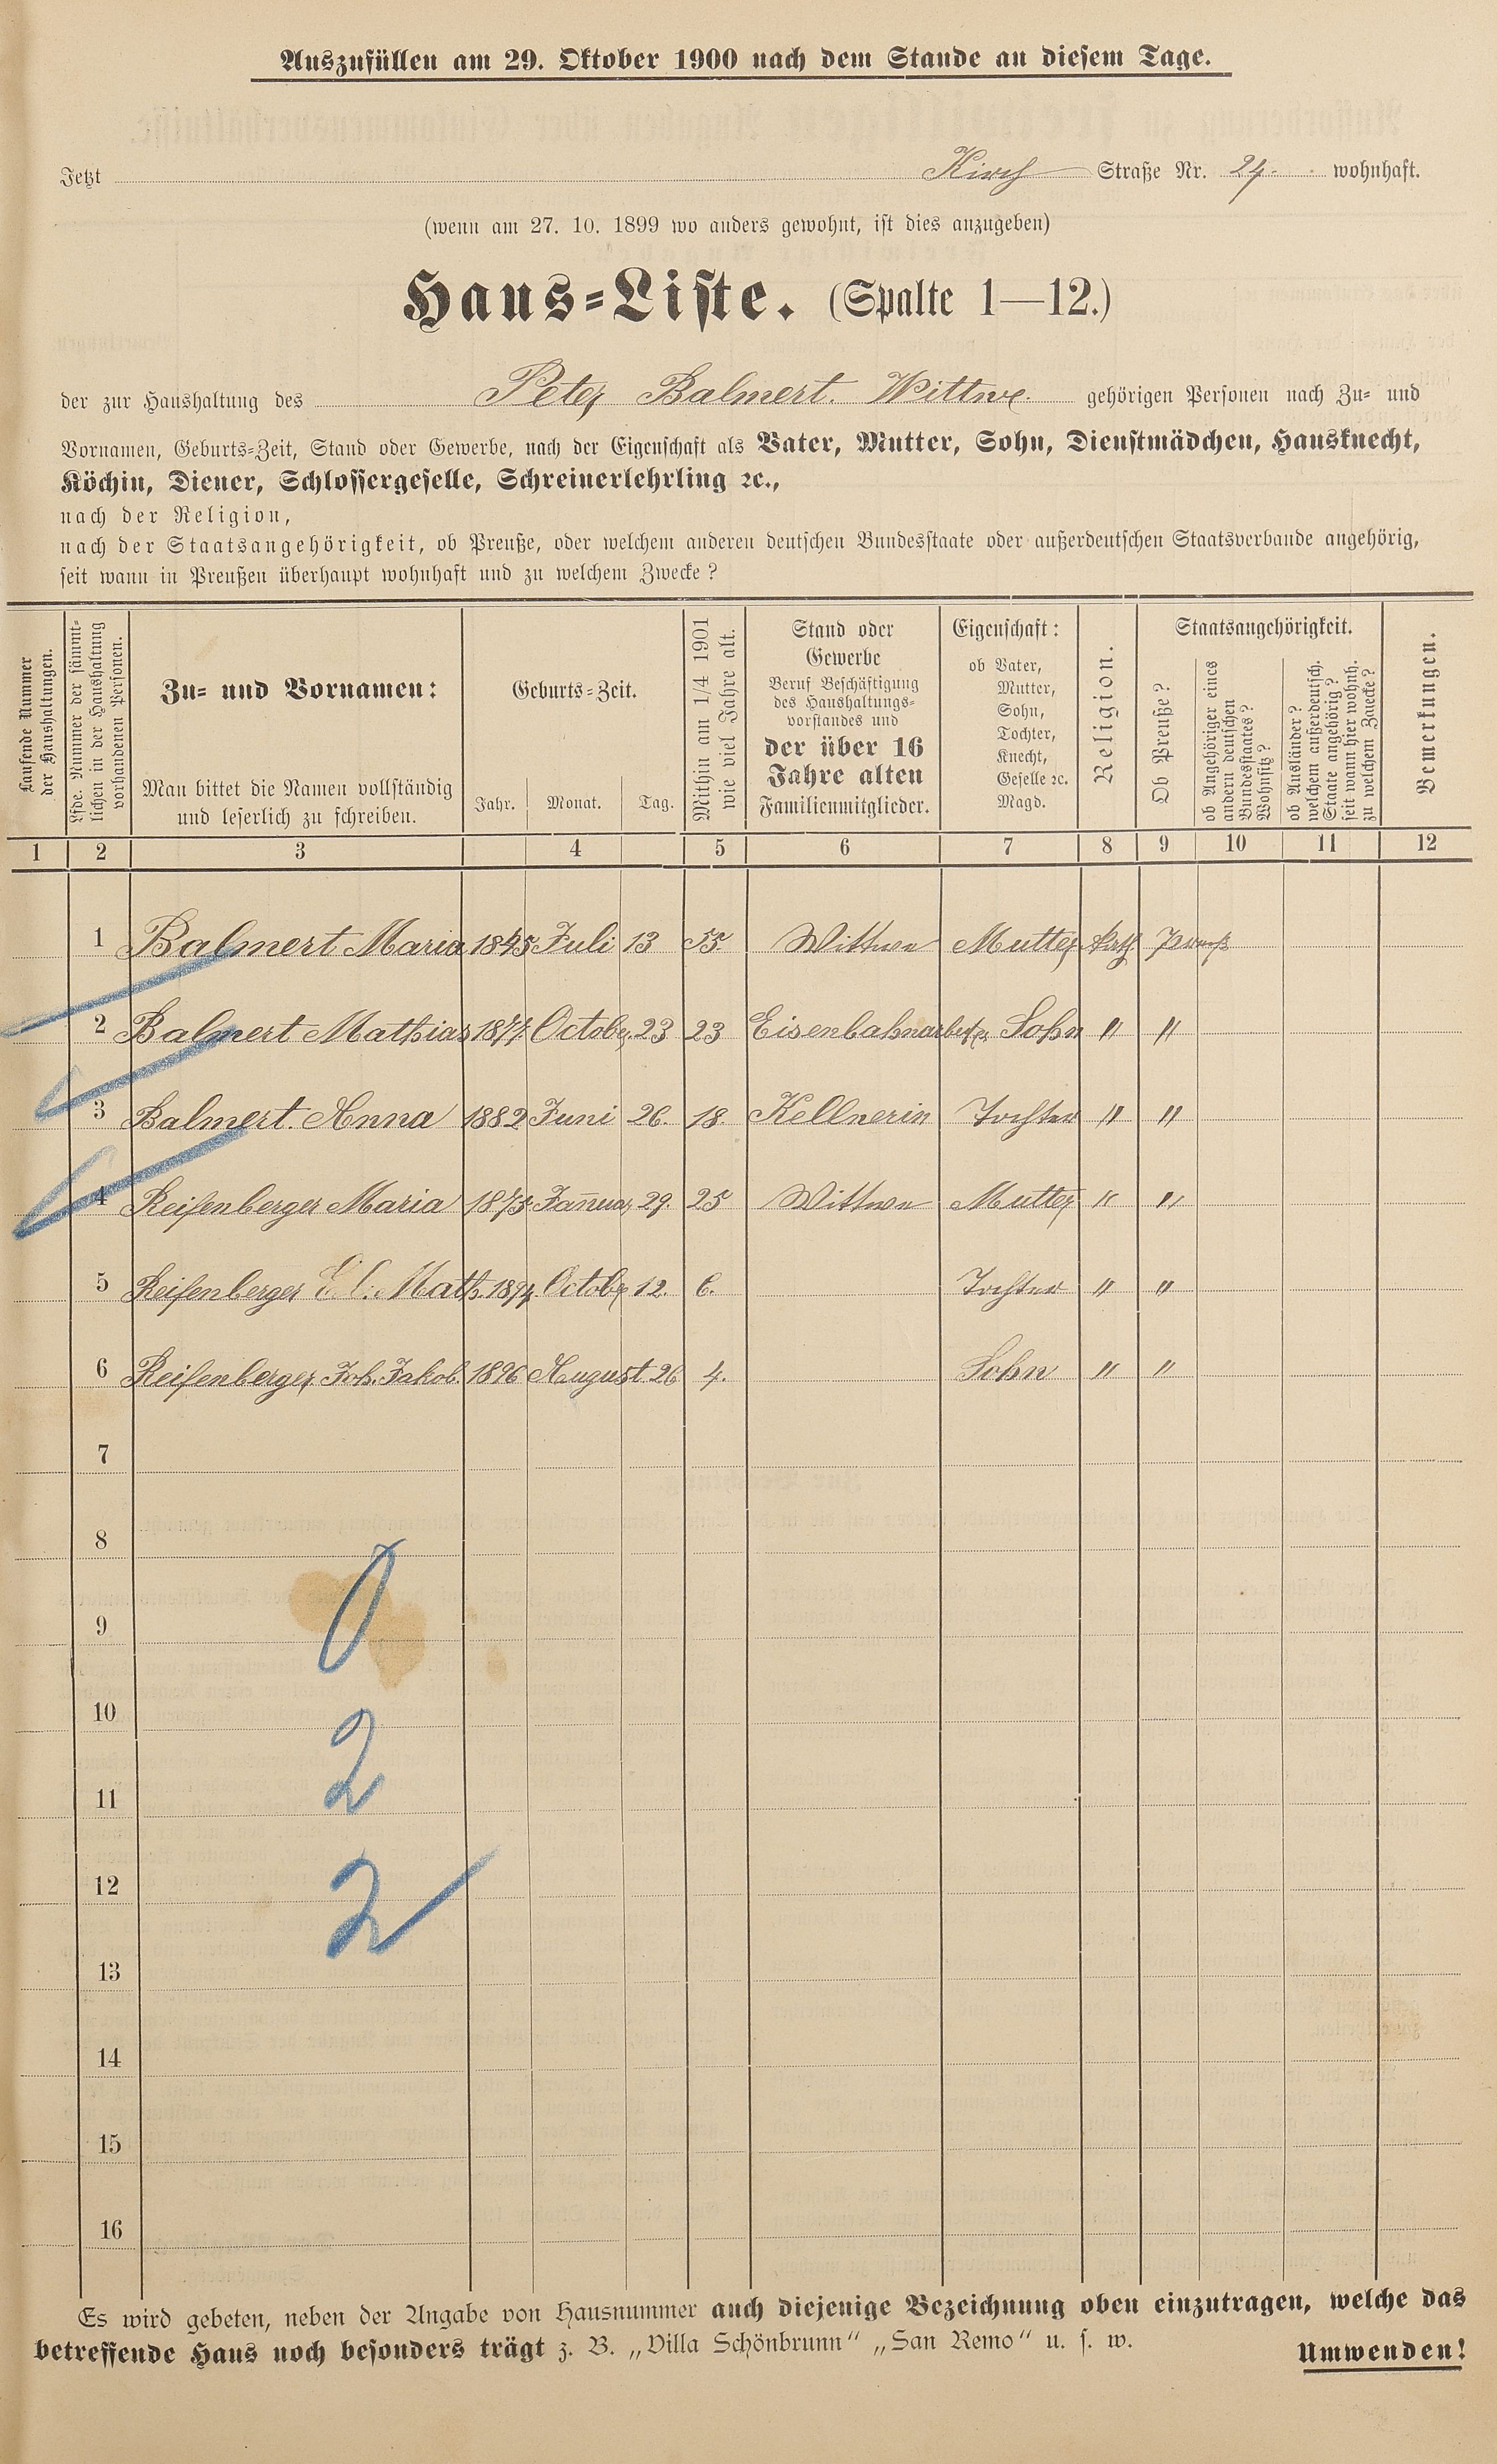 Auszufüllen am 29. Oktober 1900 nach dem Stande an diesem Tage.
Jetzt Kirch Straße Nr. 24. wohnhaft.
(wenn am 27. 10. 1899 wo anders gewohnt, ist dies anzugeben)
Haus-Liste. (Spalte 1—12.)
der zur Haushaltung des Peter Balmert. Wittwe. gehörigen Personen nach Zu- und
Vornamen, Geburts-Zeit, Stand oder Gewerbe, nach der Eigenschaft als Vater, Mutter, Sohn, Dienstmädchen, Hausknecht,
Köchin, Diener, Schlossergeselle, Schreinerlehrling ꝛc.,
nach der Religion,
nach der Staatsangehörigkeit, ob Preuße, oder welchem anderen deutschen Bundesstaate oder außerdeutschen Staatsverbande angehörig,
seit wann in Preußen überhaupt wohnhaft und zu welchem Zwecke?
Laufende Nummer
der Haushaltungen.
Lfde. Nummer der sämmt-
lichen in der Haushaltung
vorhandenen Personen.
Zu- und Vornamen:
Man bittet die Namen vollständig
und leserlich zu schreiben.
Geburts-Zeit.
Jahr. Monat. Tag.
Mithin am 1/4 1901
wie viel Jahre alt.
Stand oder
Gewerbe
Beruf Beschäftigung
des Haushaltungs-
vorstandes und
der über 16
Jahre alten
Familienmitglieder.
Eigenschaft:
ob Vater,
Mutter,
Sohn,
Tochter,
Knecht,
Geselle ꝛc.
Magd.
Religion.
Staatsangehörigkeit.
Ob Preuße?
ob Angehöriger eines
andern deutschen
Bundesstaates?
Wohnsitz?
ob Ausländer?
welchem außerdeutsch.
Staate angehörig?
seit wann hier wohnh.
zu welchem Zwecke?
Bemerkungen.
1 2 3 4 5 6 7 8 9 10 11 12
1 Balmert Maria 1845 Juli 13 55. Wittwe Mutter kath Preuß
2 Balmert Mathias 1877. October 23 23 Eisenbahnarbeiter Sohn " "
3 Balmert. Anna 1882 Juni 26. 18. Kellnerin Tochter " "
4 Reifenberger Maria 1875. Januar 29. 25 Wittwe Mutter " "
5 Reifenberger Math. 1894. October 12. 6. Tochter " "
6 Reifenberger Joh. Jakob. 1896 August 26 4. Sohn " "
7
8
9
0
10
2
11
12
2
13
14
15
16
Es wird gebeten, neben der Angabe von Hausnummer auch diejenige Bezeichnung oben einzutragen, welche das
betreffende Haus noch besonders trägt z. B. „Villa Schönbrunn“ „San Remo“ u. s. w.
Umwenden!